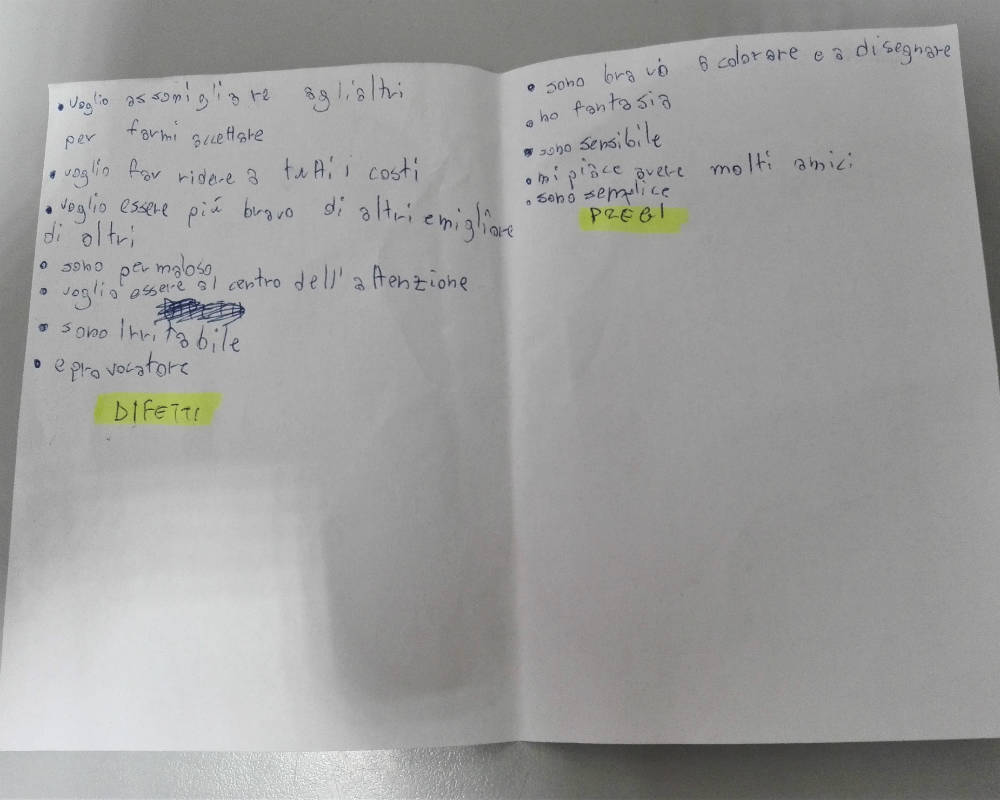 • voglio assomigliare aglialtri
per farmi accettare
• voglio far ridere a tutti i costi
• voglio essere più bravo di altri e migliore
di altri
• sono permaloso
• voglio essere al centro dell'attenzione
• sono irritabile
• e provocatore
DIFETTI
• sono bravo a colorare e a disegnare
• ho fantasia
• sono sensibile
• mi piace avere molti amici
• sono semplice
PREGI